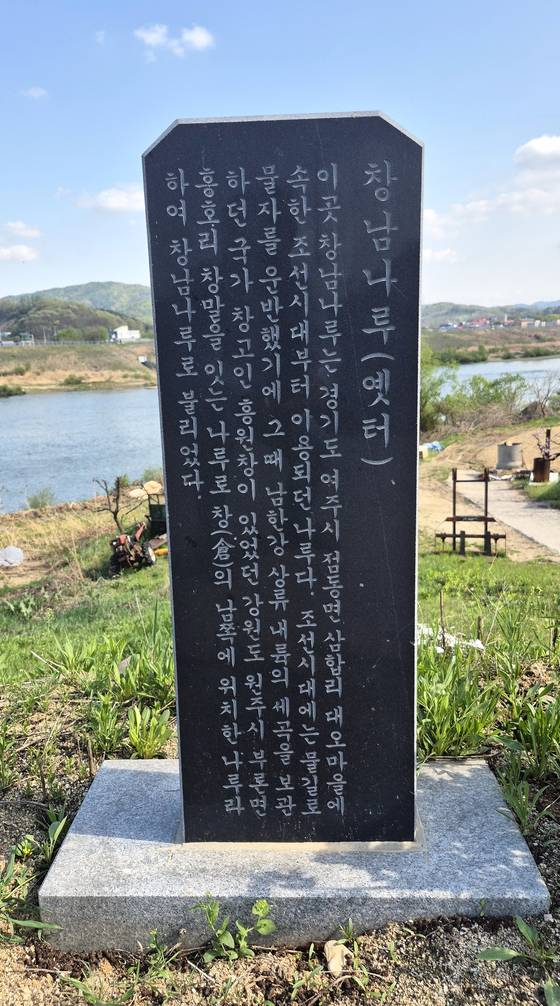 창남나루(옛터)
이곳 창남나루는 경기도 여주시 점동면 삼합리 대오마을에
속한 조선시대부터 이용되던 나루다. 조선시대에는 물길로
물자를 운반했기에 그 때 남한강 상류 내륙의 세곡을 보관
하던 국가 창고인 흥원창이 있었던 강원도 원주시 부론면
흥호리 창말을 잇는 나루로 창(倉)의 남쪽에 위치한 나루라
하여 창남나루로 불리었다.